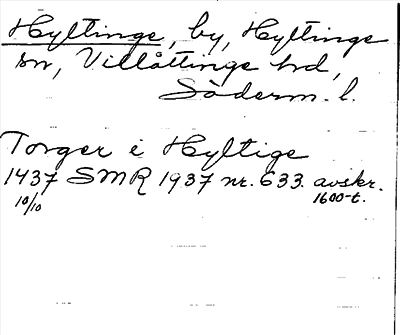 Hyltinge, by, Hyltinge
sn, Villåttinge hd,
Söderm. l.
Torger i Hyltige
1437 SMR 1937 nr. 633. avskr.
10/10 1600-t.